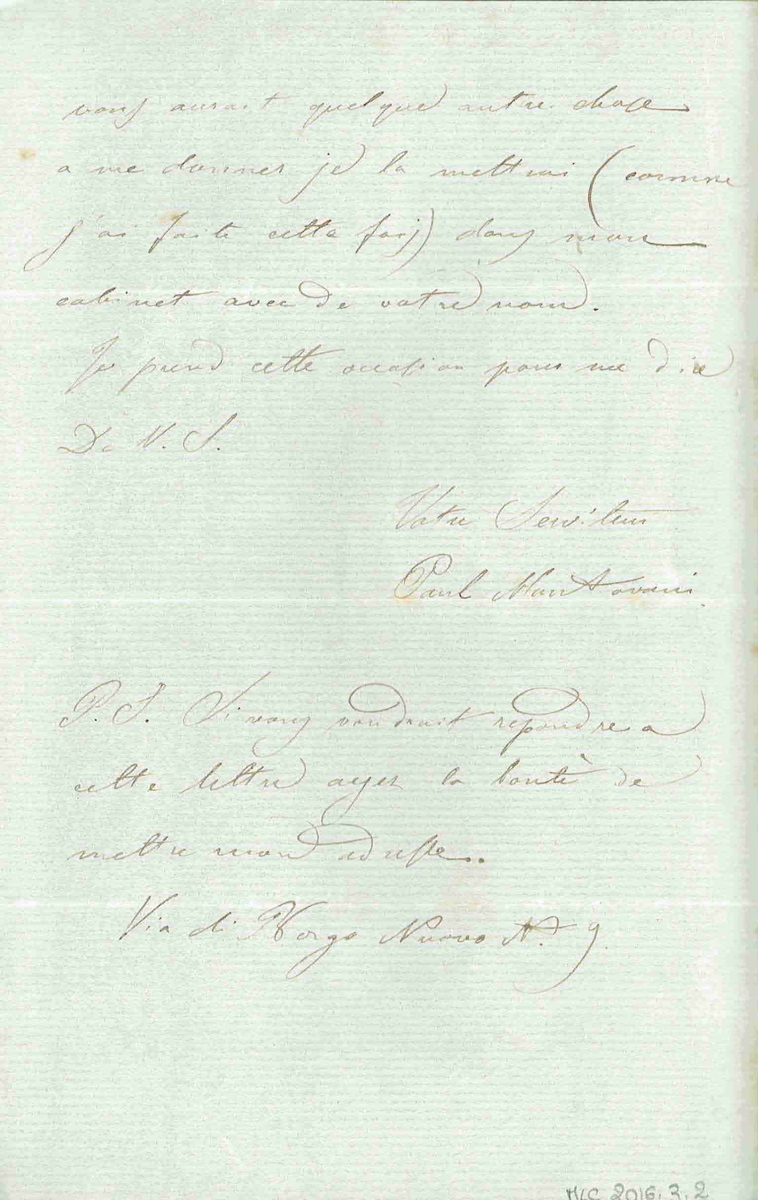 vous aurait quelque autre chose
a me donner je la mettrai (comme
j'ai faite cette fois) dans mon
cabinet avec de votre nom.
Je prend cette occasion pour me dire
De V. S.
Votre Serviteur
Paul Mantovani.
P. S. Si vous voudrait repondre a
cette lettre ayez la bontè de
mettre mon adresse.
Via di Borgo Nuovo N. 9
HLC 2016.3.2